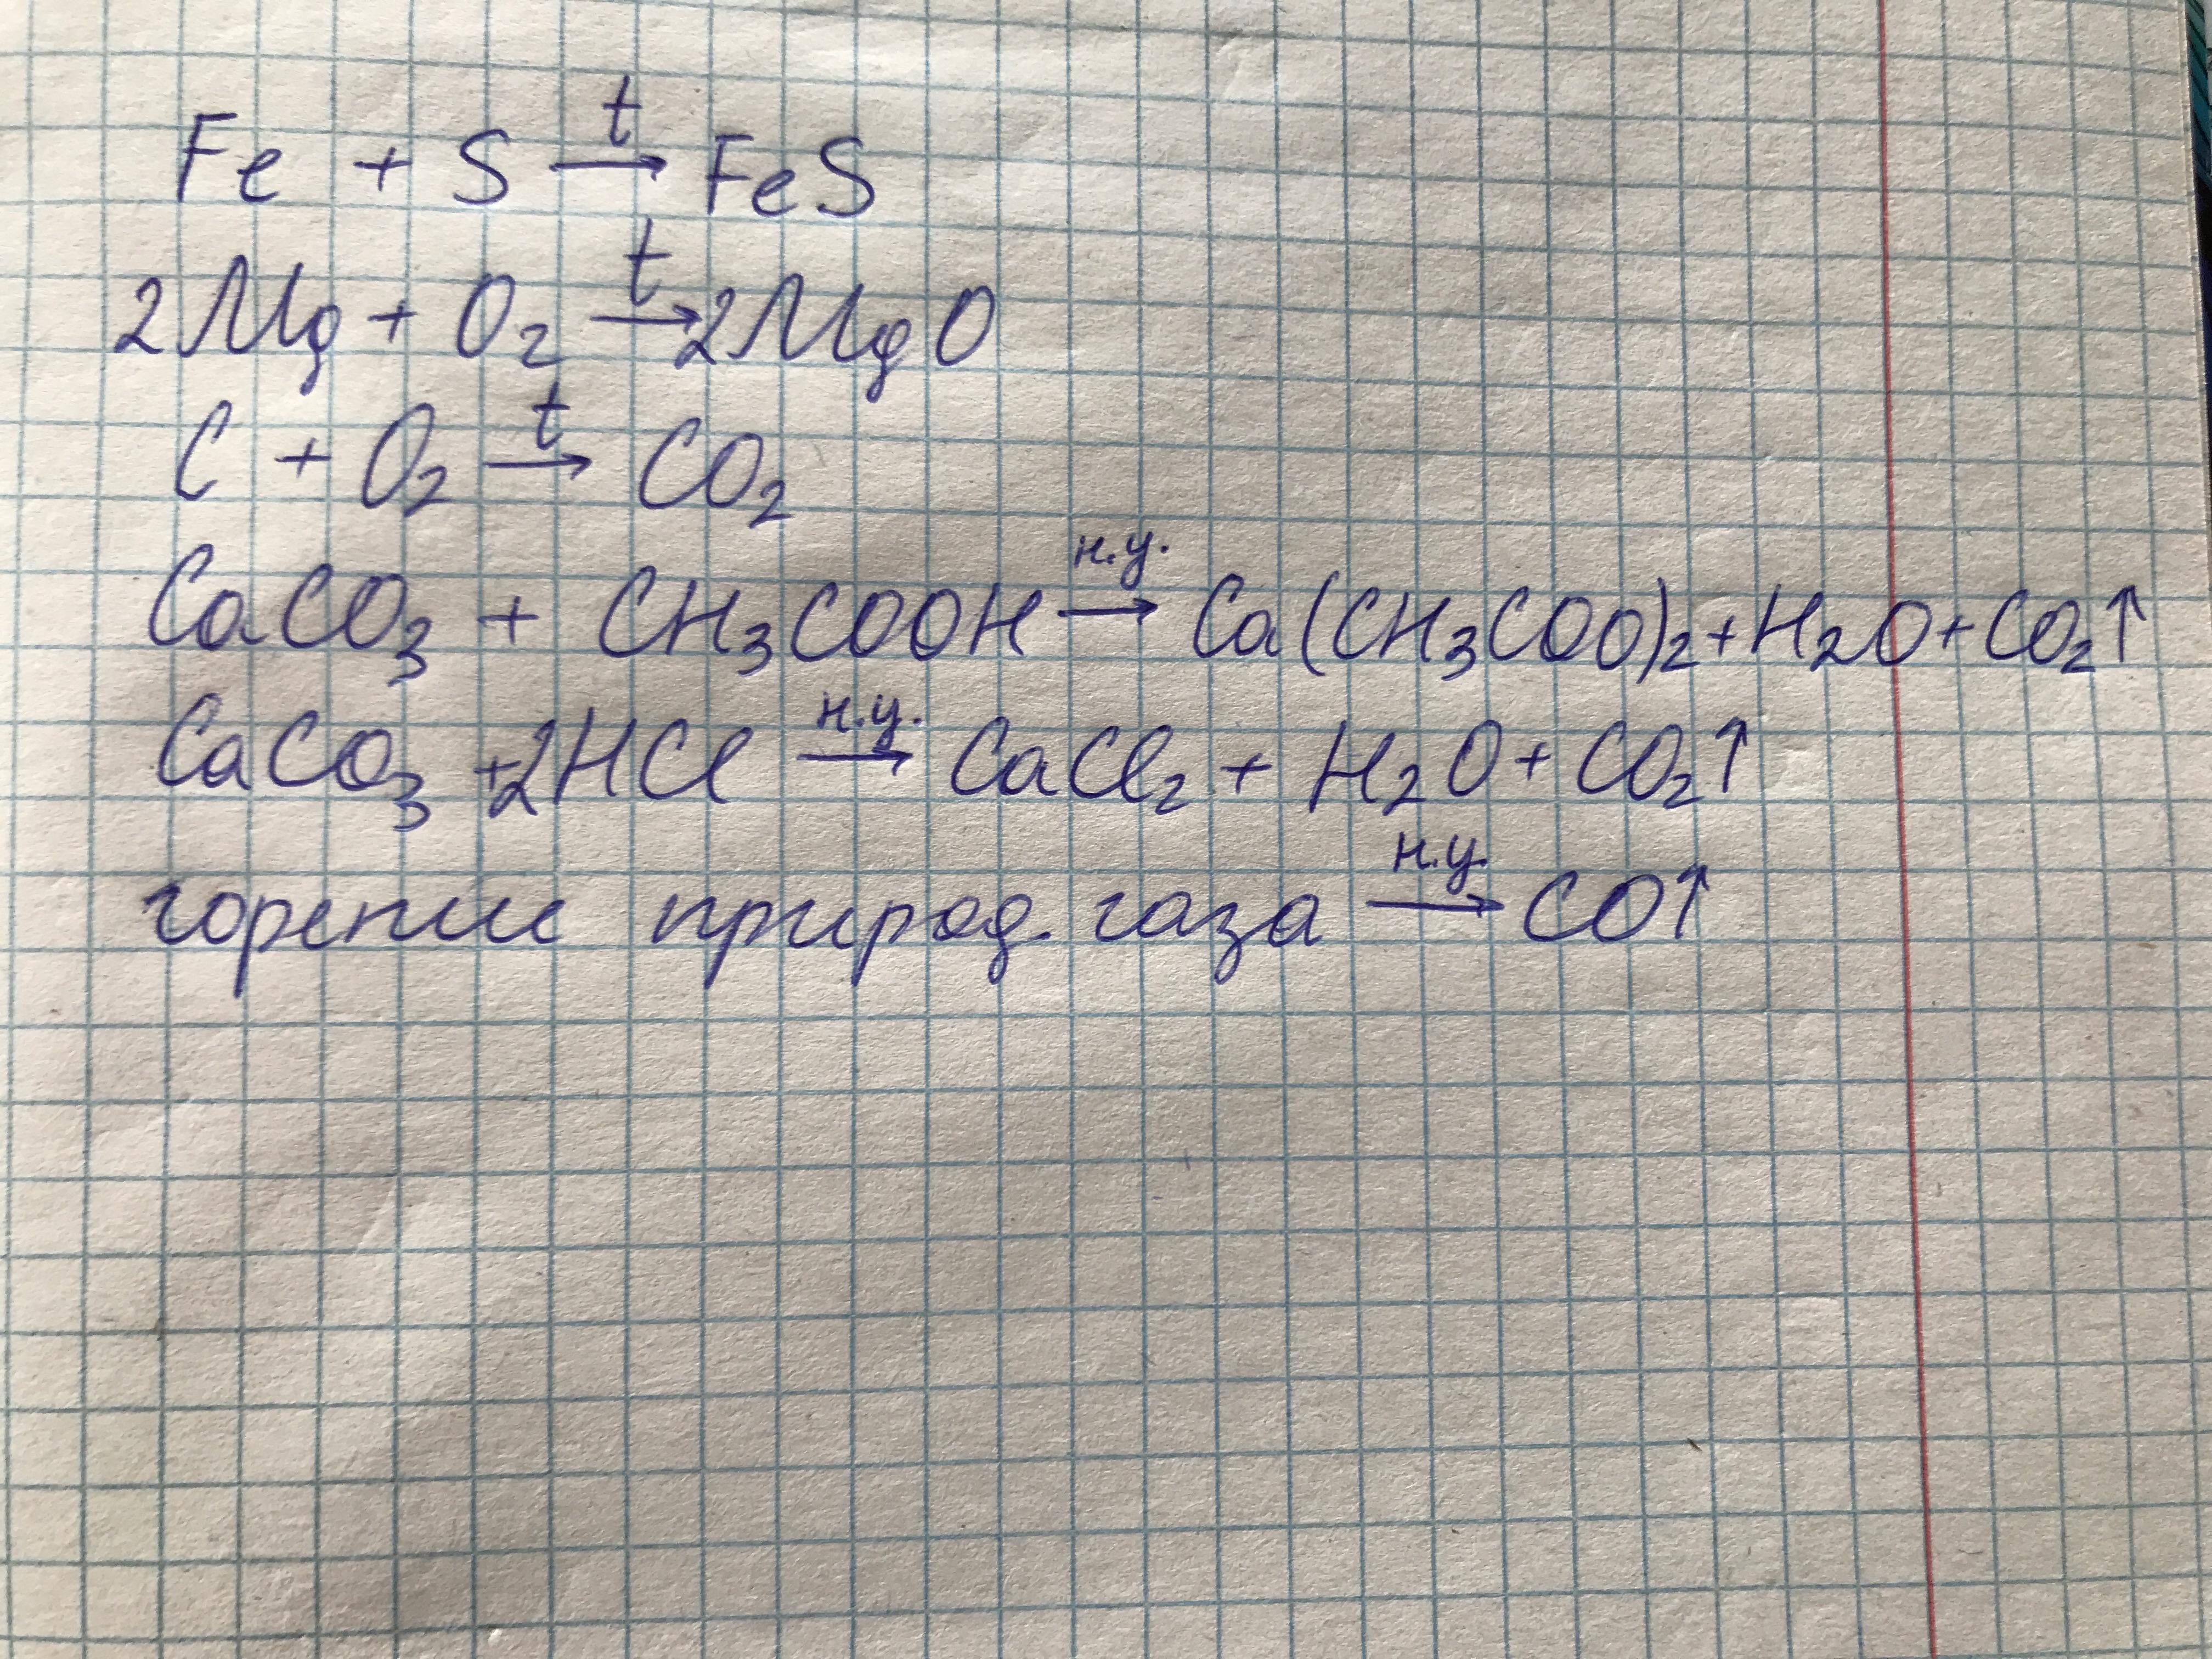 Fe + S t→ FeS
2Mg + O₂ t→ 2MgO
C + O₂ t→ CO₂
CaCO₃ + CH₃COOH н.у.→ Ca(CH₃COO)₂ + H₂O + CO₂↑
CaCO₃ + 2HCl н.у.→ CaCl₂ + H₂O + CO₂↑
горение природ. газа н.у.→ CO↑